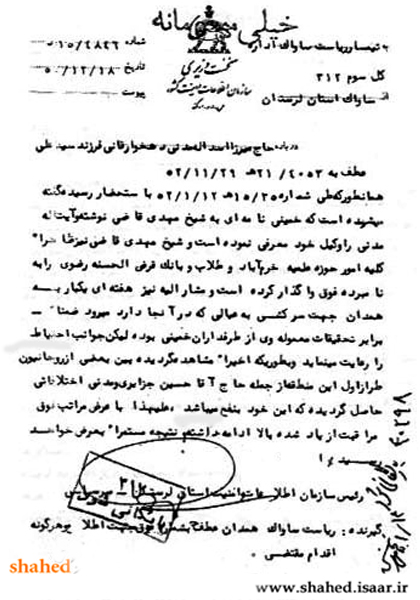 خیلی محرمانه
به تیمسار ریاست ساواک اداره
کل سوم ۳۱۲
از ساواک استان لرستان
نخست وزیری
سازمان اطلاعات و امنیت کشور
شماره
تاریخ
پیوست
درباره حاج میرزا اسداله مدنی دهخوارقانی فرزند سید علی
عطف به ۴۰۵۳/۲۱ه‍ ـ
همانطوریکه طی شماره ۱۵/۳۵ه‍ ـ ۵۲/۱/۱۲ با ستحضار رسیده گفته
میشده است که خمینی نامه ای به شیخ مهدی قاضی نوشته وآیت اله
مدنی را وکیل خود معرفی نموده است و شیخ مهدی قاضی نیز ظاهرا"
کلیه امور حوزه علمیه خرم آباد و طلاب و بانک قرض الحسنه رضوی را به
نامبرده فوق وا گذار کرده است و مشارالیه نیز هفته ای یکبار به
همدان جهت سرکشی به عیالی که در آنجا دارد میرود ضمنا" ـ
برابر تحقیقات معموله وی از طرفداران خمینی بوده لیکن جوانب احتیاط
را رعایت مینماید وبطوریکه اخیرا" مشاهده گردیده بین بعضی از روحانیون
طراز اول این منطقه از جمله حاج آقا حسین جزایری ومدنی اختلافاتی
حاصل گردیده که این خود بنفع میباشد. علیهذا با عرض مراتب فوق
مراقبت از یاد شده بالا ادامه داشته و نتیجه مستمرا" بعرض خواهد
رسید.
رئیس سازمان اطلاعات وامنیت استان لرستان ـ
گیرنده: ریاست ساواک همدان عطف بشماره فوق جهت اطلاع و هرگونه
اقدام مقتضی.
shahed
www.shahed.isaar.ir